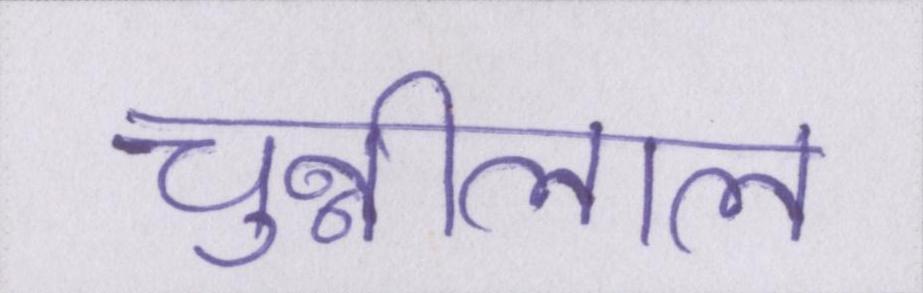 चुन्नीलाल